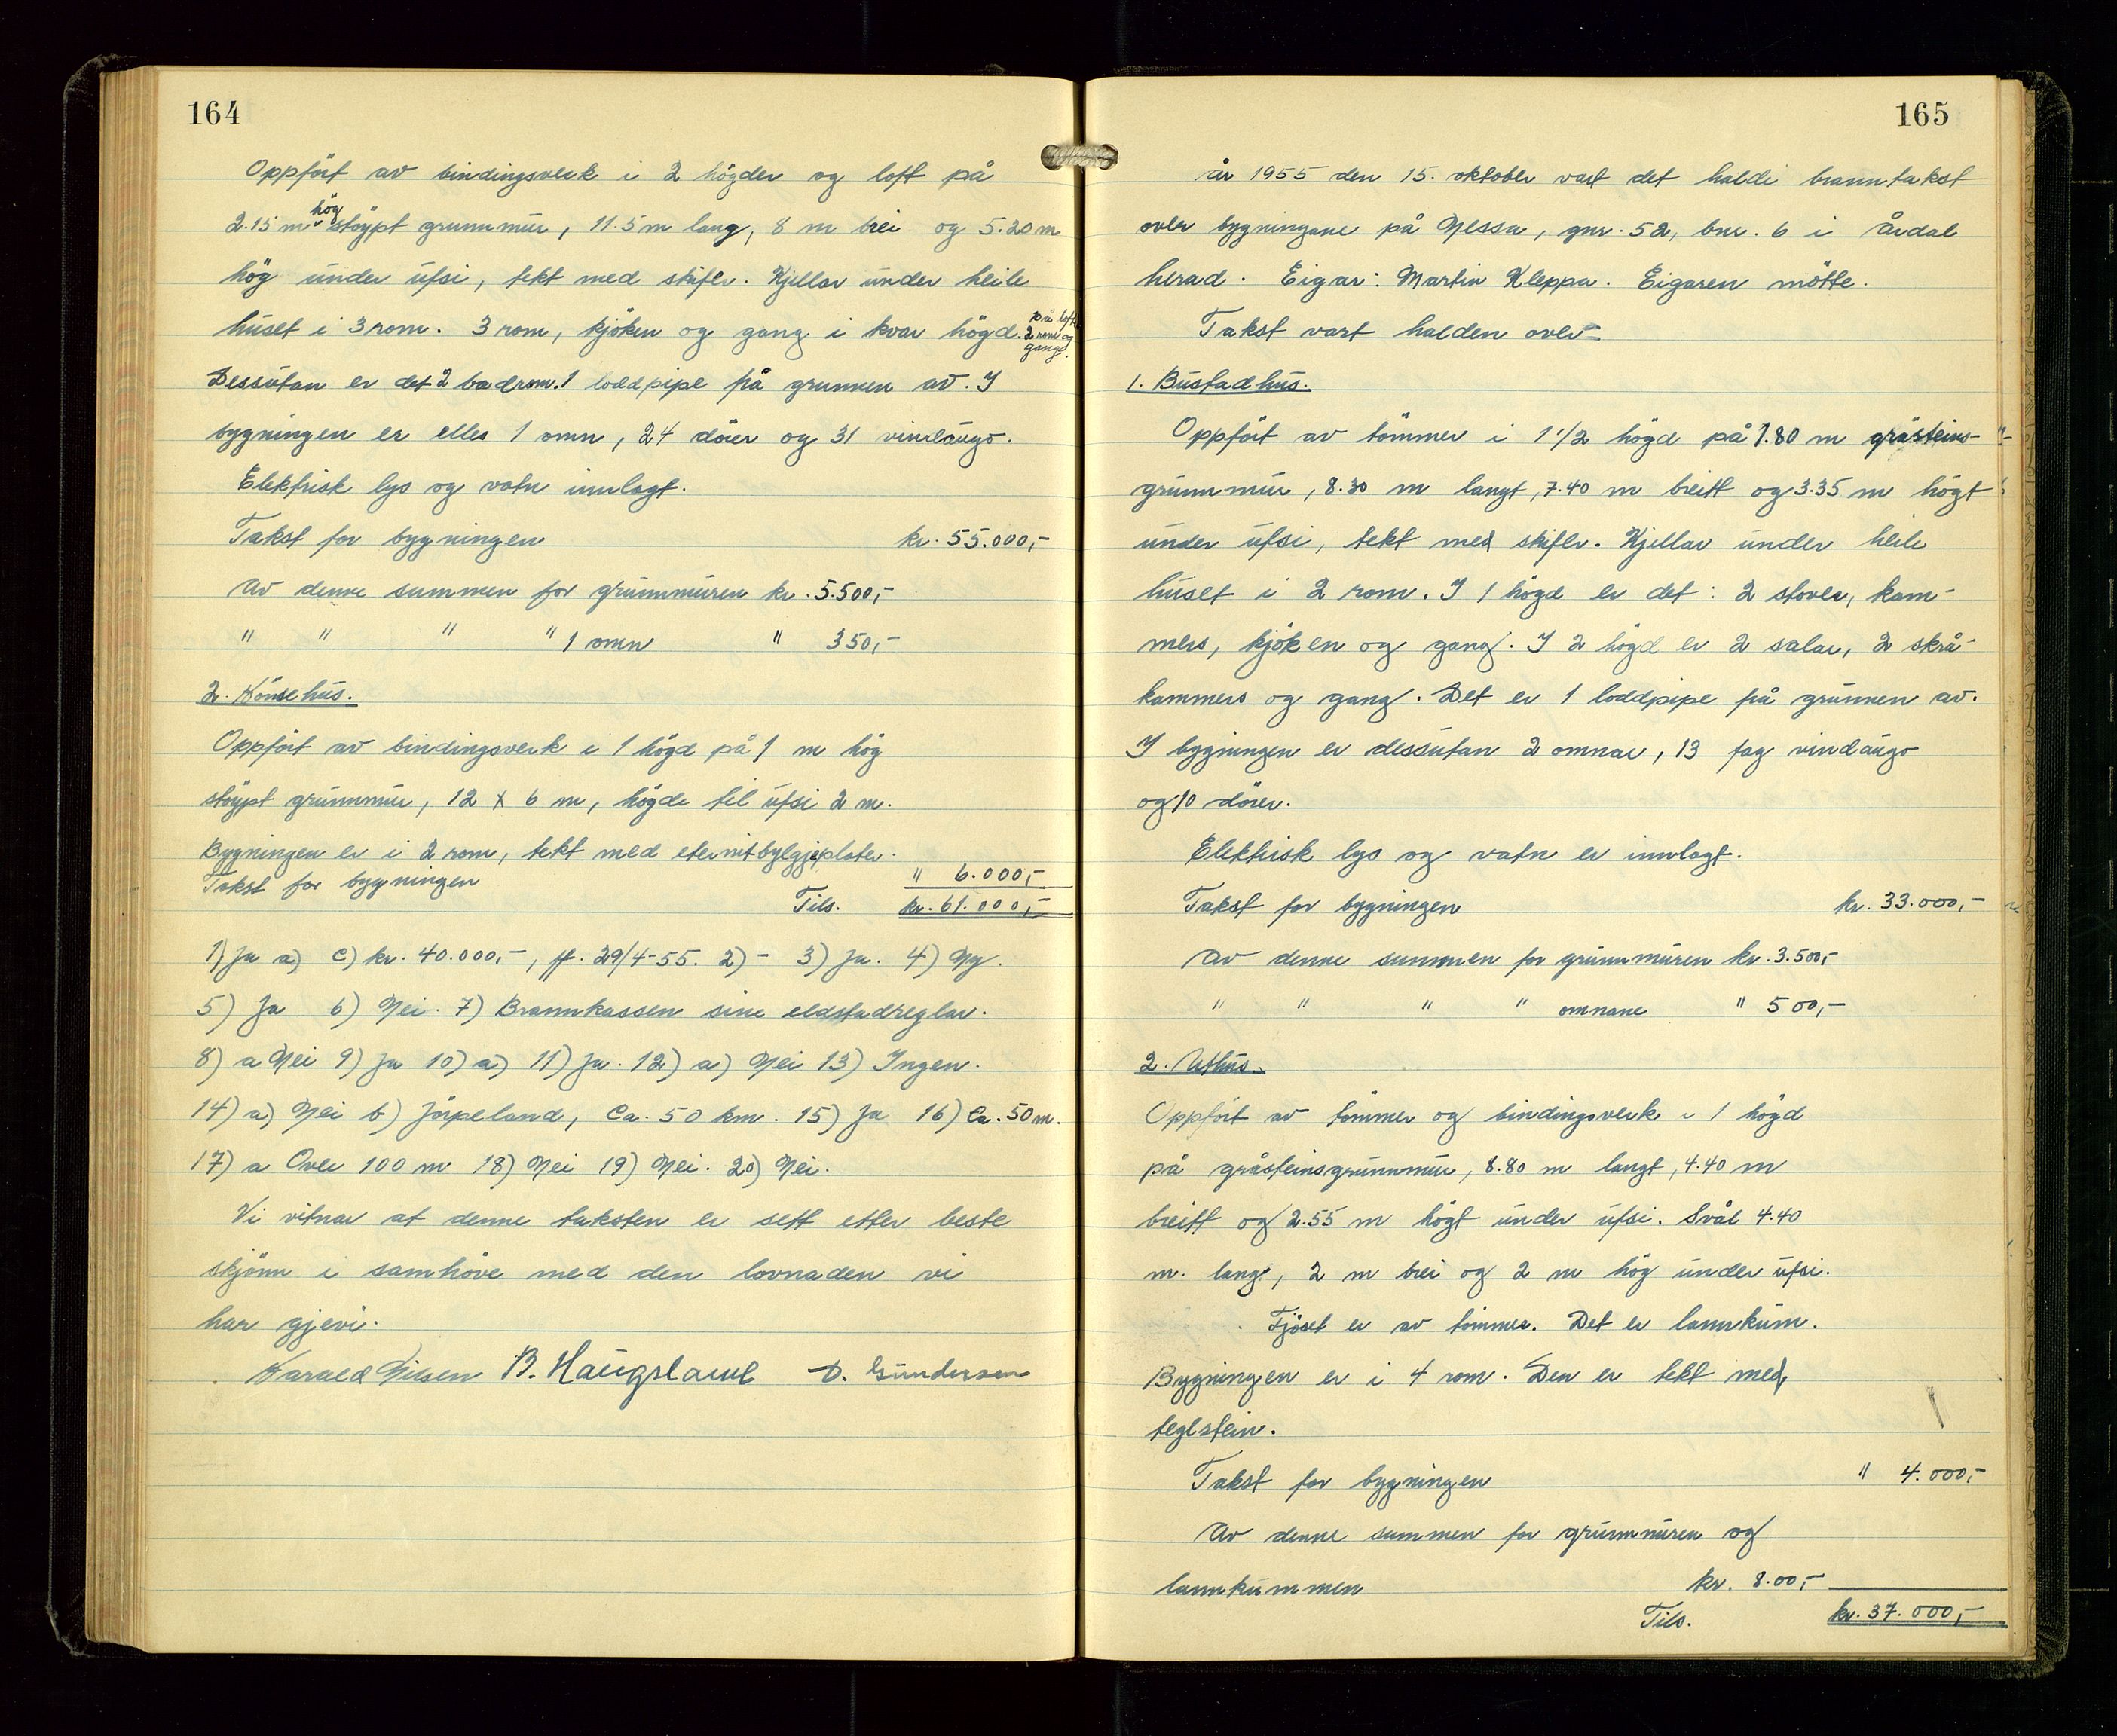 164
Oppført av bindingsverk i 2 högder og loft på
2.15 m hög støypt grunnmur, 11.5 m lang, 8 m brei og 5.20 m
hög under ufsi, tekt med skifer. Kjellar under heile
huset i 3 rom. 3 rom, kjöken og gang i kvar högd. på loft 2 rom og gang.
Dessutan er det 2 badrom. 1 loddpipe frå grunnen av. I
bygningen er elles 1 omn, 24 dörer og 31 vindaugo.
Elektrisk lys og vatn innlagt.
Takst for bygningen kr. 55.000,-
Av denne summen for grunnmuren kr. 5.500,-
" " " " 1 omn " 350,-
2. Hönsehus.
Oppfört av bindingsverk i 1 högd på 1 m hög
stöypt grunnmur, 12 x 6 m, högde til ufsi 2 m.
Bygningen er i 2 rom, tekt med eternitbylgjeplater.
Takst for bygningen " 6.000,-
Tils. kr. 61.000,-
1) Ja a) c) kr. 40.000,-, pf. 29/4-55. 2) - 3) Ja. 4) Ny.
5) Ja 6) Nei. 7) Brannkassen sine eldstadreglar.
8) a Nei 9) Ja 10) a) 11) Ja. 12) a) Nei 13) Ingen.
14) a) Nei b) Jörpeland, Ca. 50 km. 15) Ja 16) Ca. 50 m.
17) a Over 100 m 18) Nei 19) Nei. 20) Nei.
Vi vitnar at denne taksten er sett etter beste
skjönn i samhöve med den lovnaden vi
har gjevi.
Harald Nilsen B. Haugsland D. Gundersen
165
år 1955 den 15. oktober vart det haldi branntakst
over bygningane på Nessa, gnr. 52, bnr. 6 i Årdal
herad. Eigar: Martin Kleppa. Eigaren mötte.
Takst vart halden over
1. Bustadhus.
Oppfört av tömmer i 1 1/2 högd på 1.80 m gråsteins-
grunnmur, 8.30 m langt, 7.40 m breitt og 3.35 m högt
under ufsi, tekt med skifer. Kjellar under heile
huset i 2 rom. I 1 högd er det: 2 stover, kam-
mers, kjöken og gang. I 2 högd er 2 salar, 2 skrå-
kammers og gang. Det er 1 loddpipe frå grunnen av.
I bygningen er dessutan 2 omnar, 13 fag vindaugo
og 10 dörer.
Elektrisk lys og vatn er innlagt.
Takst for bygningen kr. 33.000,-
Av denne summen for grunnmuren kr. 3.500,-
" " " " omnane " 500,-
2. Uthus.
Oppfört av tömmer og bindingsverk i 1 högd
på gråsteinsgrunnmur, 8.80 m langt, 4.40 m
breitt og 2.55 m högt under ufsi. Svål 4.40
m. lang, 2 m brei og 2 m hög under ufsi.
Fjöset er av tömmer. Det er lannkum.
Bygningen er i 4 rom. Den er tekt med
teglstein.
Takst for bygningen " 4.000,-
Av denne summen for grunnmuren og
lannkummen kr. 8.00,-
Tils. kr. 37.000,-